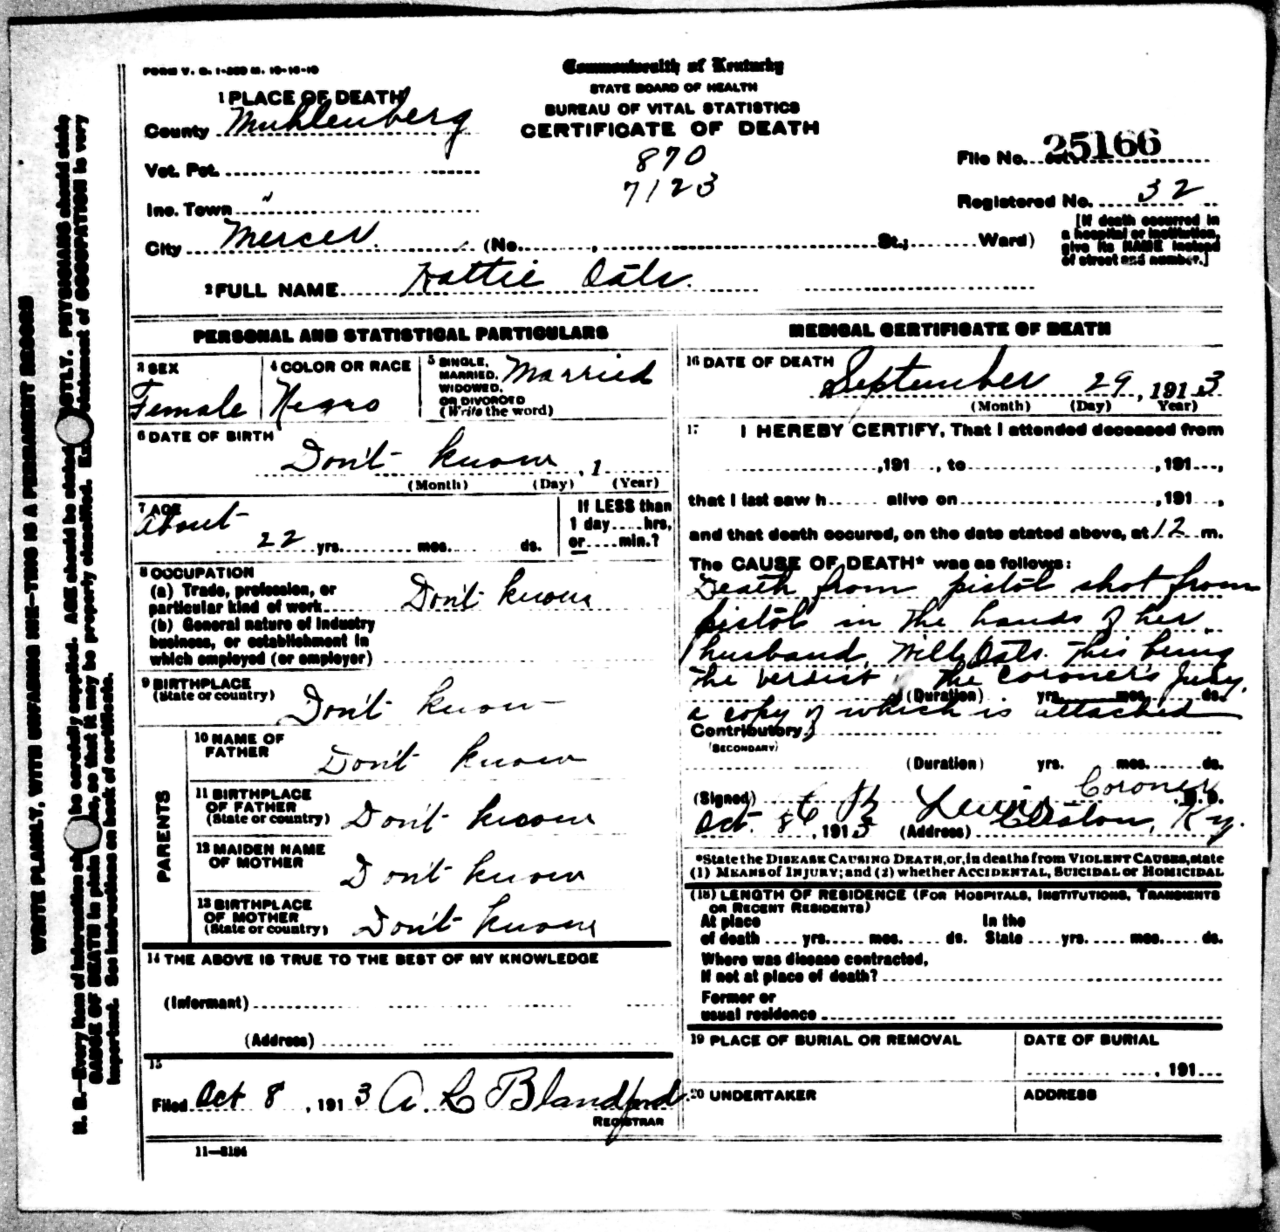 FORM V. S. 1-350 M. 10-10-10
Commonwealth of Kentucky
STATE BOARD OF HEALTH
BUREAU OF VITAL STATISTICS
CERTIFICATE OF DEATH
870
7123
1 PLACE OF DEATH
County Muhlenberg
Vot. Pct.
Inc. Town "
City Mercer (No. , St.; Ward)
File No. 25166
Registered No. 32
[If death occurred in
a hospital or institution,
give its NAME instead
of street and number.]
2 FULL NAME Hattie Oats.
PERSONAL AND STATISTICAL PARTICULARS
3 SEX
Female
4 COLOR OR RACE
Negro
5 SINGLE,
MARRIED,
WIDOWED,
OR DIVORCED
(Write the word)
Married
6 DATE OF BIRTH
Don't know , 1
(Month) (Day) (Year)
7 AGE
About
22 yrs. mos. ds.
If LESS than
1 day hrs,
or min.?
8 OCCUPATION
(a) Trade, profession, or
particular kind of work Don't know
(b) General nature of industry
business, or establishment in
which employed (or employer)
9 BIRTHPLACE
(State or country)
Don't know
PARENTS
10 NAME OF
FATHER
Don't know
11 BIRTHPLACE
OF FATHER
(State or country)
Don't know
12 MAIDEN NAME
OF MOTHER
Don't know
13 BIRTHPLACE
OF MOTHER
(State or country)
Don't know
14 THE ABOVE IS TRUE TO THE BEST OF MY KNOWLEDGE
(Informant)
(Address)
15
Filed Oct 8 , 1913 A. L Blandford
REGISTRAR
11—3184
MEDICAL CERTIFICATE OF DEATH
16 DATE OF DEATH
September 29, 1913
(Month) (Day) Year)
17 I HEREBY CERTIFY, That I attended deceased from
,191 , to ,191 ,
that I last saw h alive on ,191 ,
and that death occured, on the date stated above, at 12 m.
The CAUSE OF DEATH* was as follows:
Death from pistol shot from
pistol in the hands of her
husband, Will Oats. This being
the verdict of the coroner's jury,
(Duration) yrs. mos. ds.
a copy of which is attached
Contributory
(SECONDARY)
(Duration) yrs. mos. ds.
Coroner
(Signed) Lewis M.D.
Oct. 8 , 1913 (Address) Ky.
*State the DISEASE CAUSING DEATH, or, in deaths from VIOLENT CAUSES, state
(1) MEANS of INJURY; and (2) whether ACCIDENTAL, SUICIDAL or HOMICIDAL
(18) LENGTH OF RESIDENCE (FOR HOSPITALS, INSTITUTIONS, TRANSIENTS
OR RECENT RESIDENTS)
At place In the
of death yrs. mos. ds. State yrs. mos. ds.
Where was disease contracted,
If not at place of death?
Former or
usual residence
19 PLACE OF BURIAL OR REMOVAL
DATE OF BURIAL
, 191
20 UNDERTAKER
ADDRESS
WRITE PLAINLY, WITH UNFADING INK—THIS IS A PERMANENT RECORD
N. B.—Every item of information should be carefully supplied. AGE should be stated EXACTLY. PHYSICIANS should state
CAUSE OF DEATH in plain terms, so that it may be properly classified. Exact statement of OCCUPATION is very
important. See instructions on back of certificate.